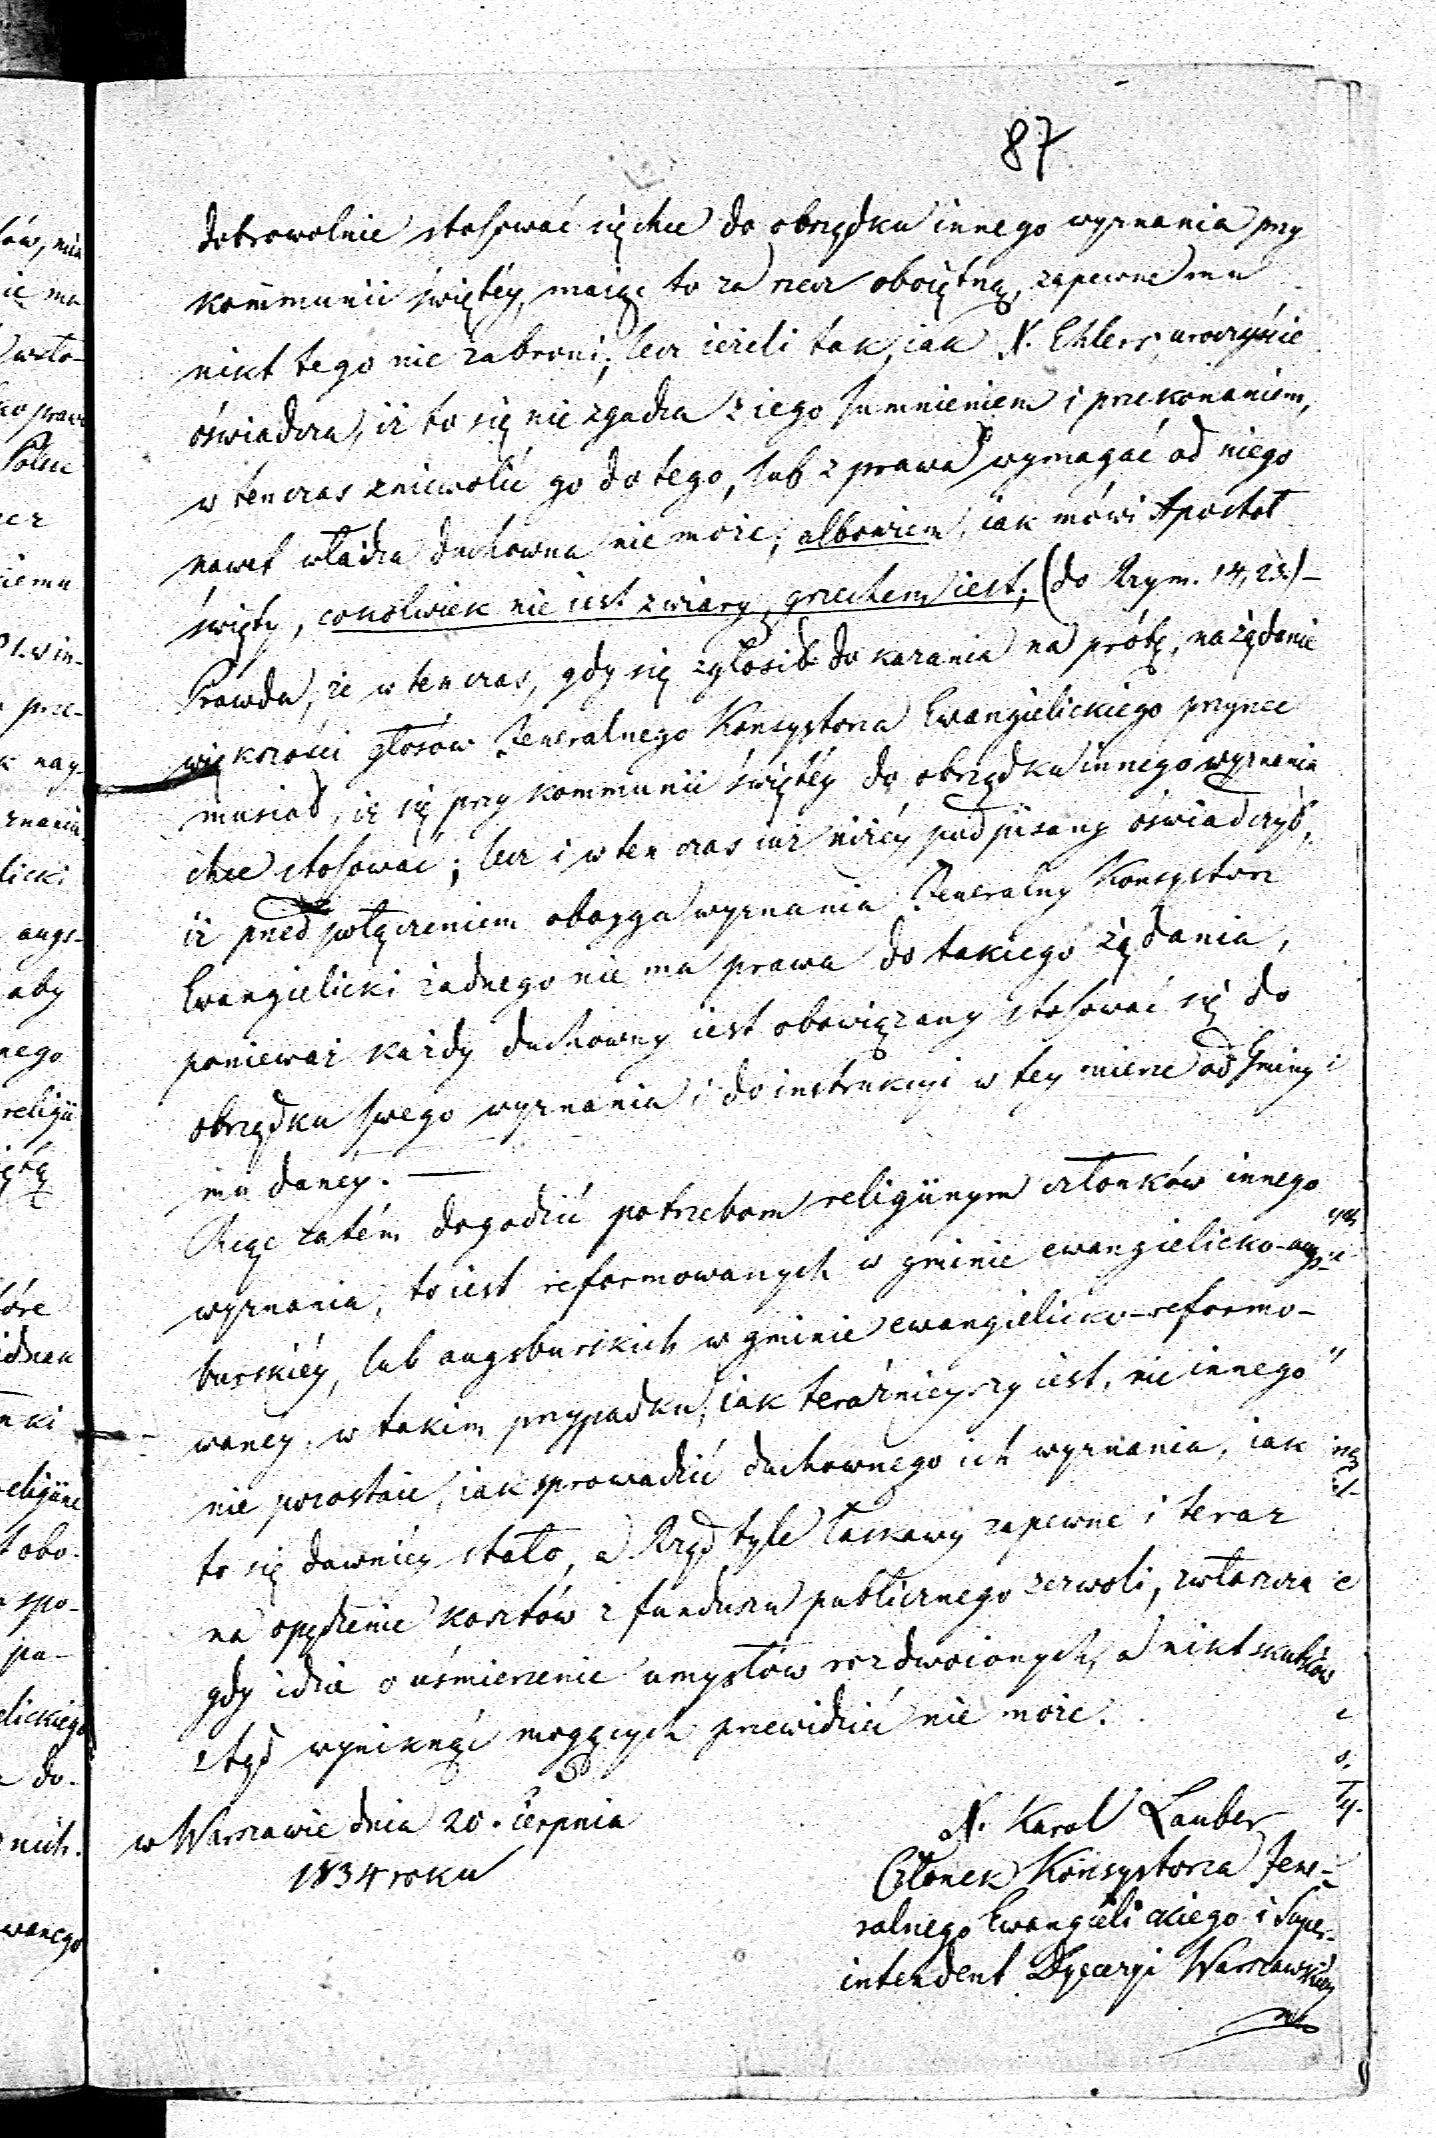 87
dobrowolnie stosować się chce do obrządku innego wyznania przy
kommunii świętéy, maiąc to za rzecz oboiętną, zapewne mu
nikt tego nie zabroni; lecz ieżeli tak, iak X. Ehlers, uroczyście
oświadcza, iż to się nie zgadza z iego sumnieniem i przekonaniem,
w tenczas zniewolić go do tego, lub z prawa wymagać od niego
nawet władza duchowna nie może; albowiem, iak mówi Apostoł
święty, cokolwiek nie iest z wiary, grzechem iest; (do Rzym. 14, 23.) –
Prawda, że w tenczas, gdy się zgłosił do kazania na próbę, na żądanie
większości głosów Jeneralnego Konsystorza Ewangielickiego przyrzec
musiał, iż się przy kommunii świętéy do obrządku innego wyznania
chce stosować; lecz i w ten czas iuż niżéy podpisany oświadczył,
iż przed połączeniem oboyga wyznania Jeneralny Konsystorz
Ewangielicki żadnego nie ma prawa do takiego żądania,
ponieważ każdy duchowny iest obowiązany stosować się do
obrządku swego wyznania i do instrukcyi w tey mierze od Gminy
mu danéy. —
Chcąc zatém dogodzić potrzebom religiinym członków innego
wyznania, to iest reformowanych w gminie ewangielicko-augs-
burskiéy, lub augsburskich w gminie ewangielicko-reformo-
waney, w takim przypadku, iak teraźnieyszy iest, nic innego
nie pozostaie, iak sprowadzić duchownego ich wyznania, iak
to się dawniéy stało, a Rząd tyle łaskawy zapewne i teraz
na opędzenie kosztów z funduszu publicznego zezwoli, zwłaszcza
gdy idzie o uśmierzenie umysłów rozdwoionych, a nikt skutków
ztąd wyniknąć mogących przewidzić nie może.
w Warszawie dnia 20. Sierpnia
1834 roku
X. Karol Lauber
Członek Konsystorza Jene-
ralnego Ewangielickiego i Super-
intendent Dyecezyi Warszawskiey